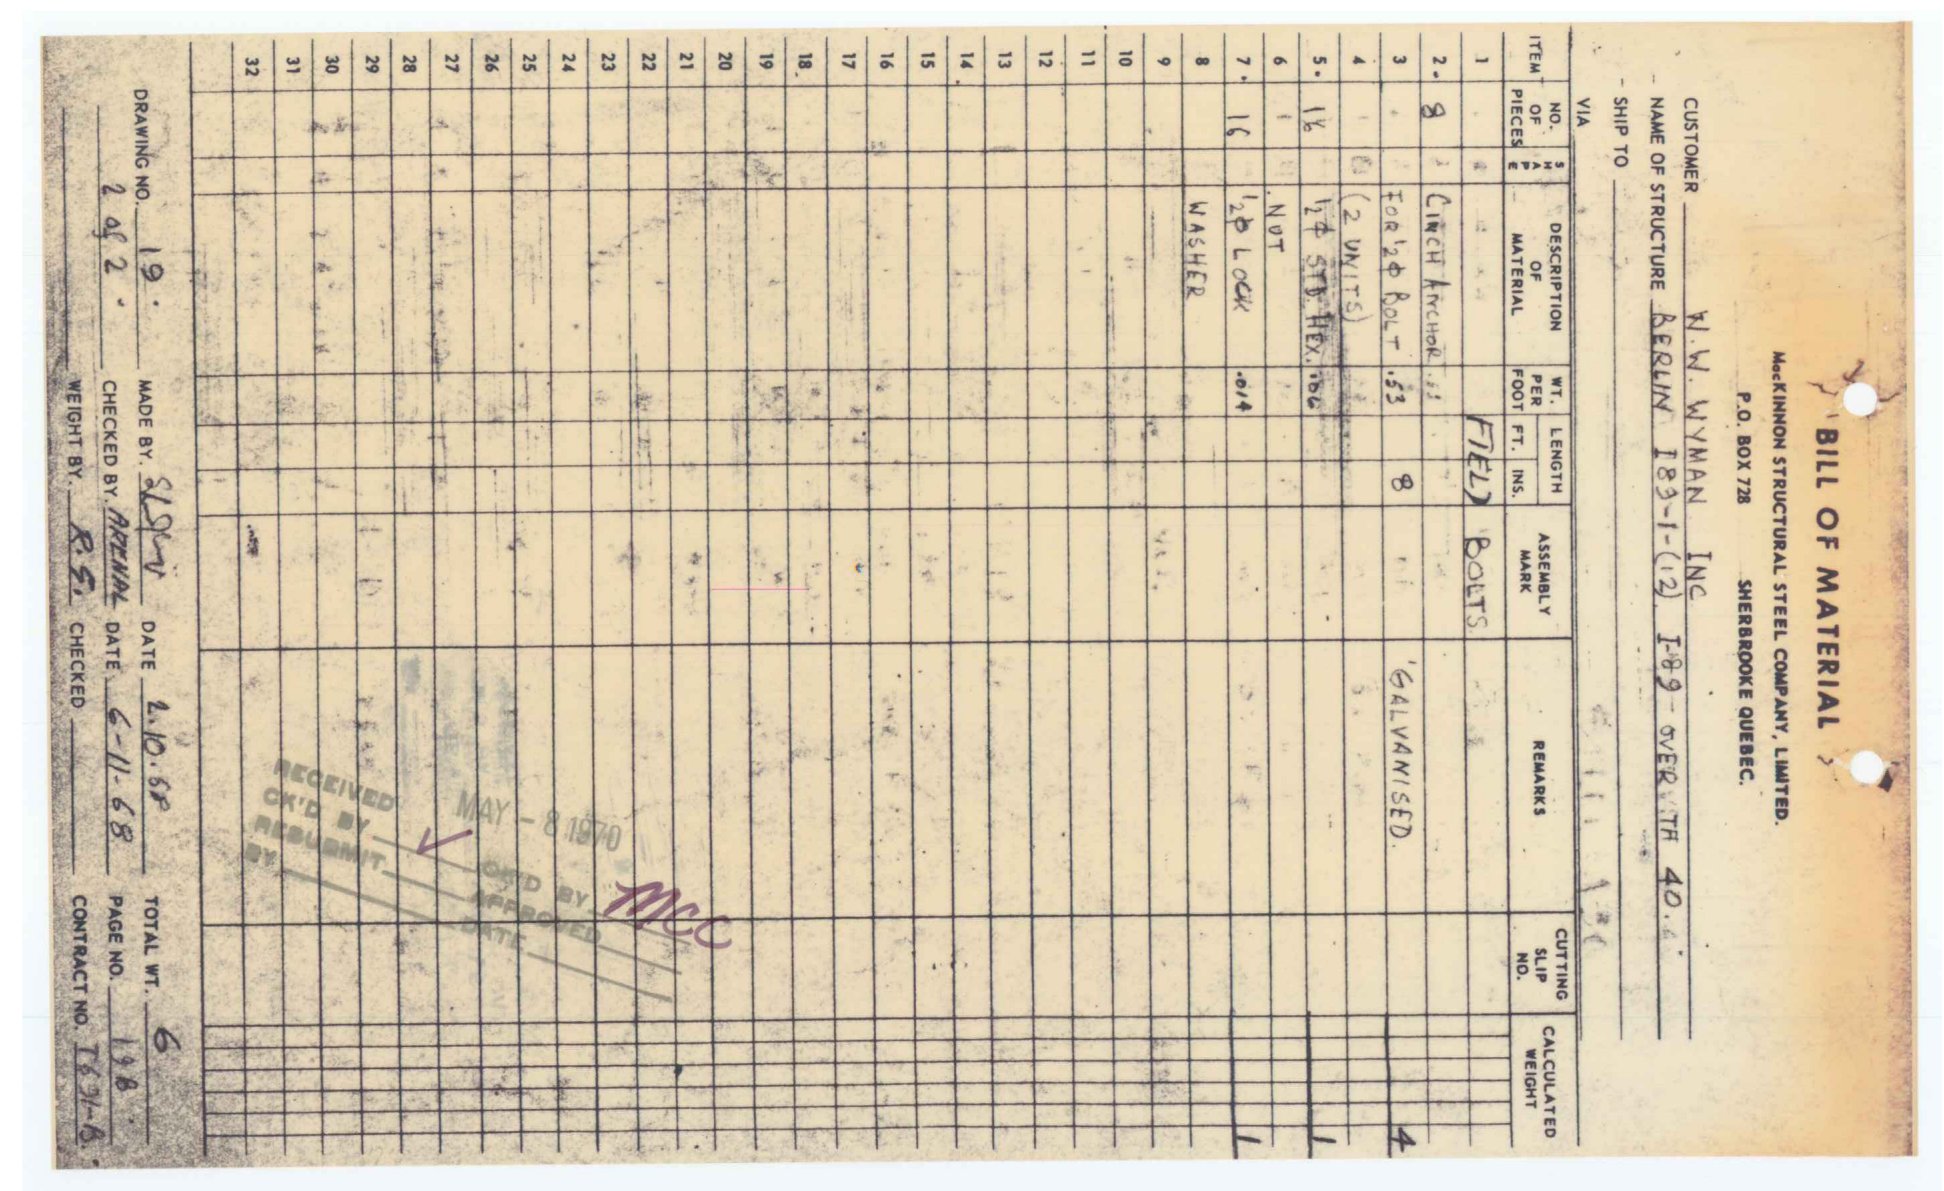 BILL OF MATERIAL
MacKINNON STRUCTURAL STEEL COMPANY, LIMITED.
P.O. BOX 728 SHERBROOKE QUEBEC.
CUSTOMER W.W. WYMAN INC
NAME OF STRUCTURE BERLIN I89-1-(12) I-89 OVER VTH 40.
SHIP TO
VIA
ITEM NO. OF PIECES SHAPE DESCRIPTION OF MATERIAL WT. PER FOOT LENGTH FT. INS. ASSEMBLY MARK REMARKS CUTTING SLIP NO. CALCULATED WEIGHT
1 FIELD BOLTS
2. 8 CINCH ANCHOR
3 FOR 1/2 Φ BOLT .53 8 GALVANISED. 4
4 (2 UNITS)
5. 16 1/2 Φ STD. HEX. .106 1
6 NUT
7. 16 1/2 Φ LOCK .014 1
8 WASHER
9
10
11
12
13
14
15
16
17
18
19
20
21
22
23
24
25
26
27
28
29
30
31
32
RECEIVED MAY - 8 1970
CK'D BY OK'D BY MCC
RESUBMIT APPROVED
BY DATE
DRAWING NO. 19 MADE BY. DATE 2.10.68 TOTAL WT. 6
2 of 2 CHECKED BY. ARENAL DATE 6-11-68 PAGE NO. 19B
WEIGHT BY. R.G. CHECKED CONTRACT NO. T691-B